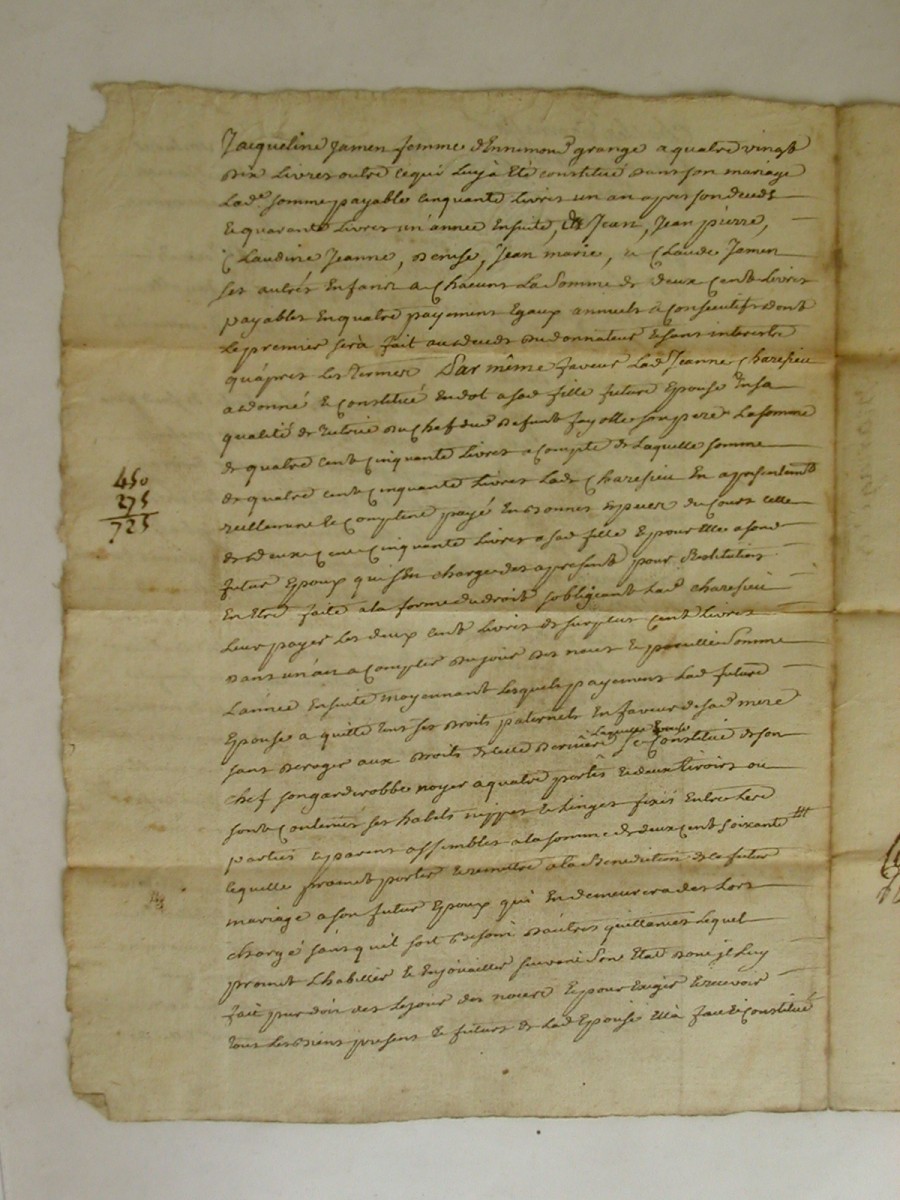 Jacqueline Jamen femme d'Ennemond grange a quatre vingt
dix Livres outre cequi Luy à Eté constitué dans son mariage
Lad.e somme payable cinquante Livres un an apres son deceds
Et quarante Livres un'année Ensuite, à Jean, Jean pierre,
Claudine Jeanne, denise, Jean marie, et Claude Jamen
ses autres Enfans a chacuns La somme de deux cent Livres
payables En quatre payement Egaux annuels et consecutifs dont
Le premier serà fait au deceds du donnateur Et sans interests
qu'àpres Les termes Par même faveur Lad. Jeanne Charesieu
a donné Et constitué En dot a sad. fille future Epouse En sa
qualité de tutrice du chef dud. defunt fayolle son pere La somme
de quatre cent cinquante Livres a compte de Laquelle somme
de quatre cent cinquante Livres Lad. Charesieu En a presentem.t
reellement Et comptene payé En bonnes Especes du cours celle
de deux cent cinquante Livres a sad. fille Et pour Elle a sond.
futur Epoux qui s'En charge des apresent pour Restitution
En Etre faite a la forme du droit s'obligeant Lad. charesieu
Leur payer Les deux cent Livres de surplus cent Livres
dans un'an a compter du jour des noces Et pareille somme
L'année Ensuite moyennant Lesquels payement Lad. future
Epouse a quitté tous ses droits paternels En faveur de sad. mere
sans deroger aux droits de cette derniere, Laquelle Epouse se Constitue de son
chef son garderobbe noyer a quatre portes Et deux tiroirs ou
sont contenus ses habits nippes Et Linges fixés Entre Lesd.
parties Et parens assemblés a la somme de deux cent soixante ₶
Lequelle promet porter Et remettre a la Benediction de ce futur
mariage a son futur Epoux qui En demeurera des Lors
chargé sans qu'il soit besoin d'autres quittances Lequel
promet L'habiller Et Enjoüailler suivant Son Etat dont jl Luy
fait pur don des Le jour des noces Et pour Exiger Et recevoir
tous Les biens present Et futurs de Lad. Epouse Elle à fait Et Constitué
450
275
725